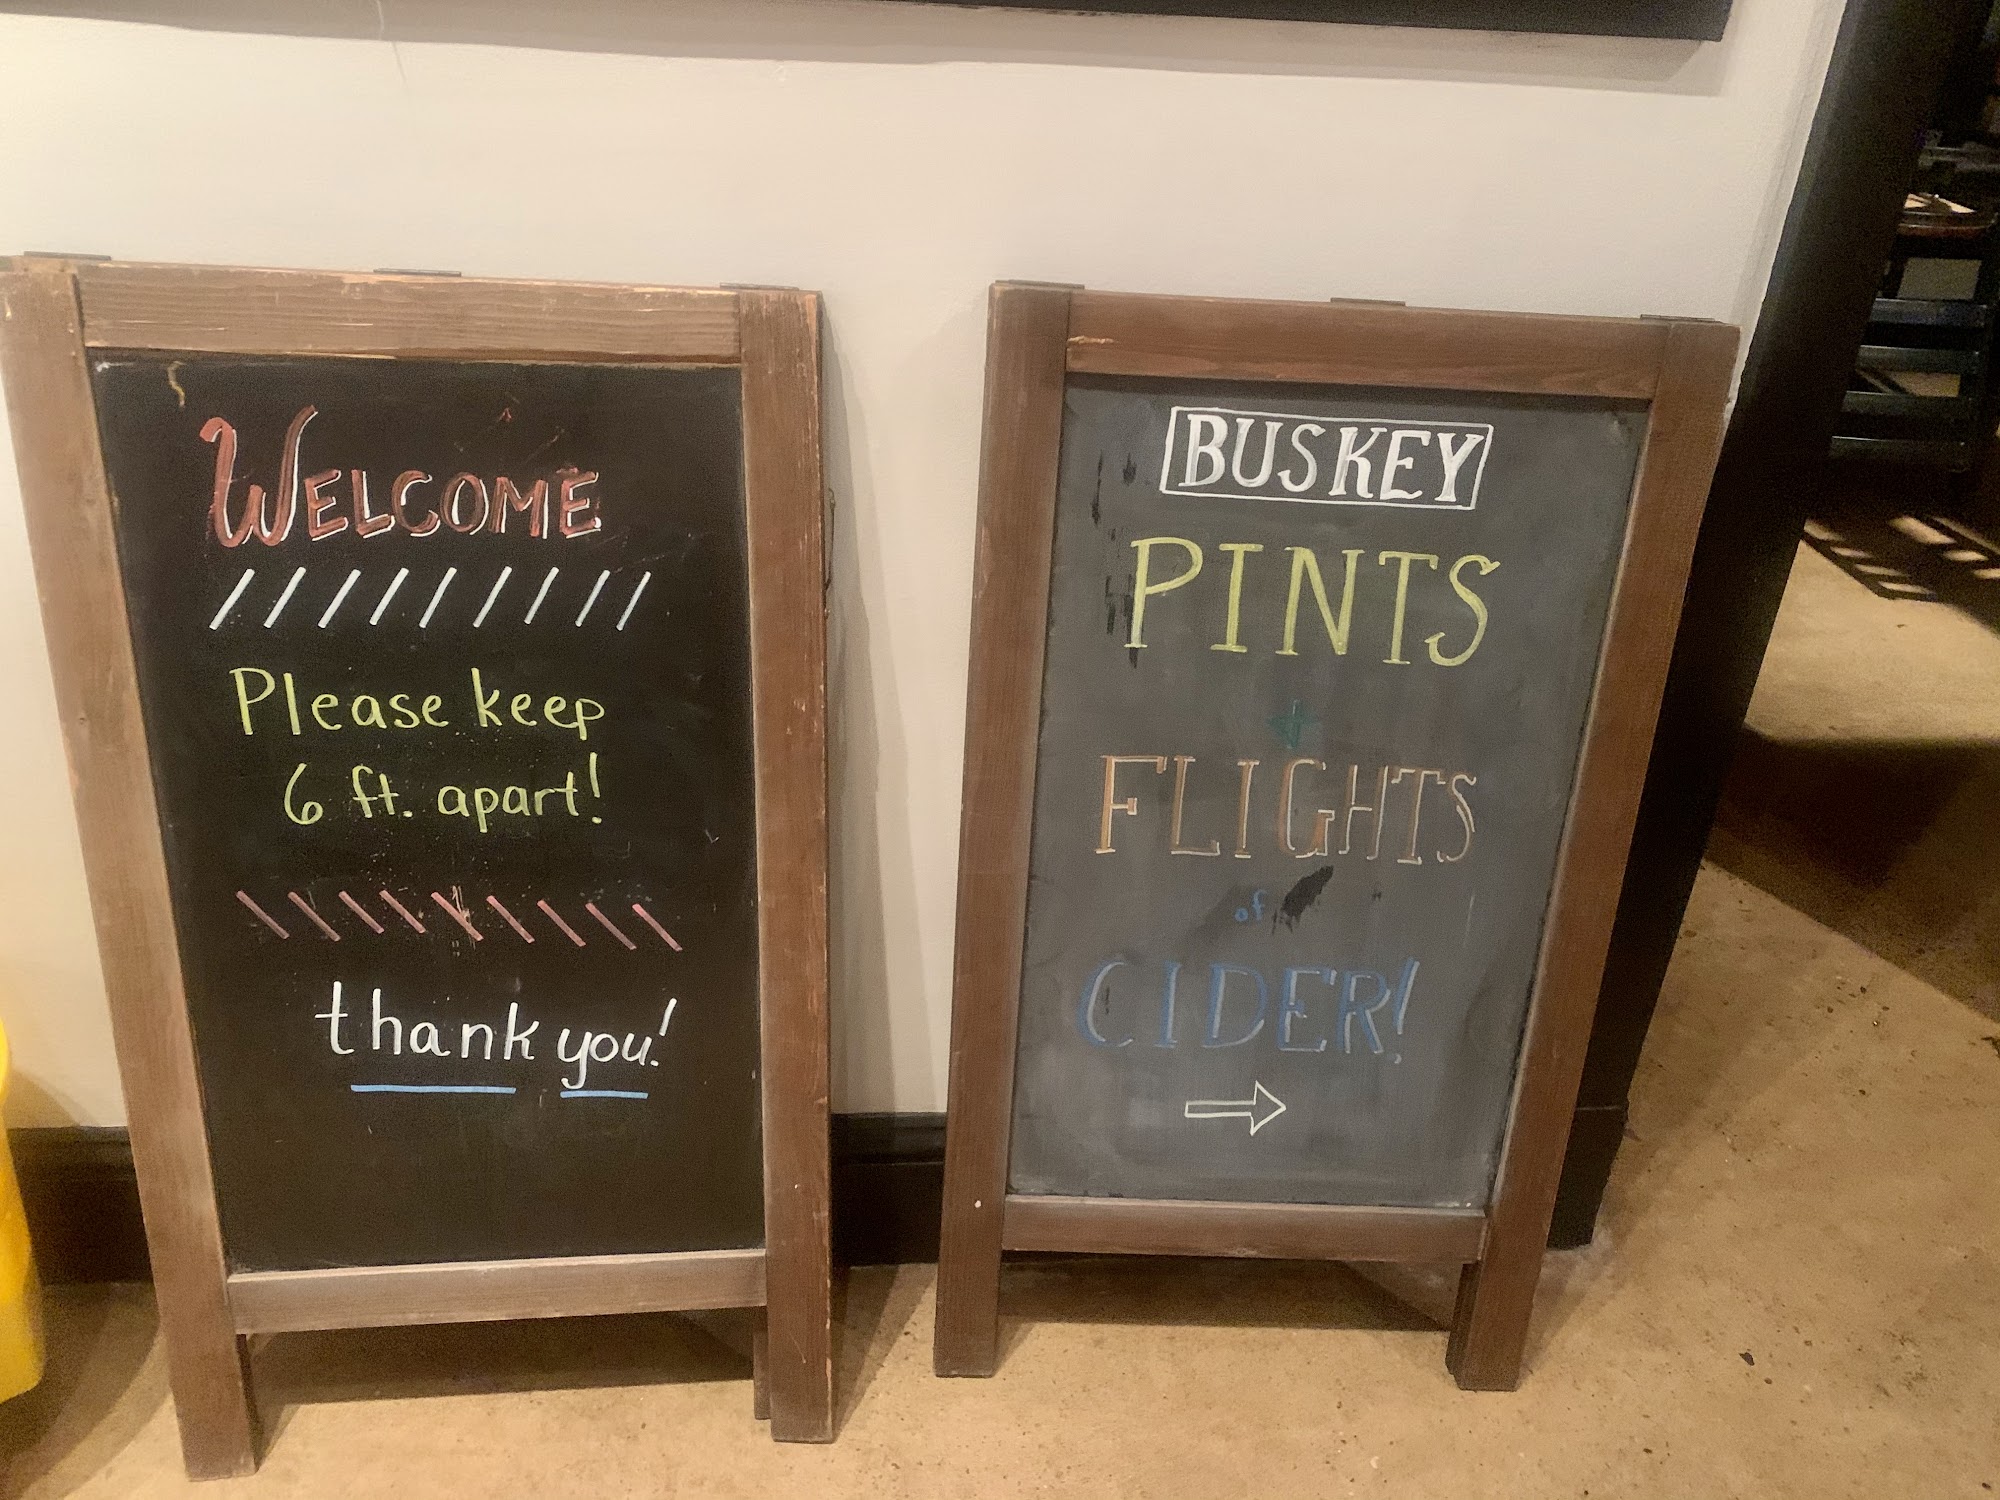 WELCOME
Please keep
6 ft. apart!
thank you!
BUSKEY
PINTS
+
FLIGHTS
of
CIDER!